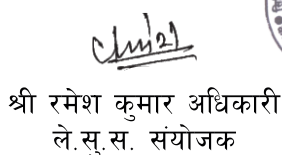 श्री रमेश कुमार अधिकारी
ले.सु.स. संयोजक